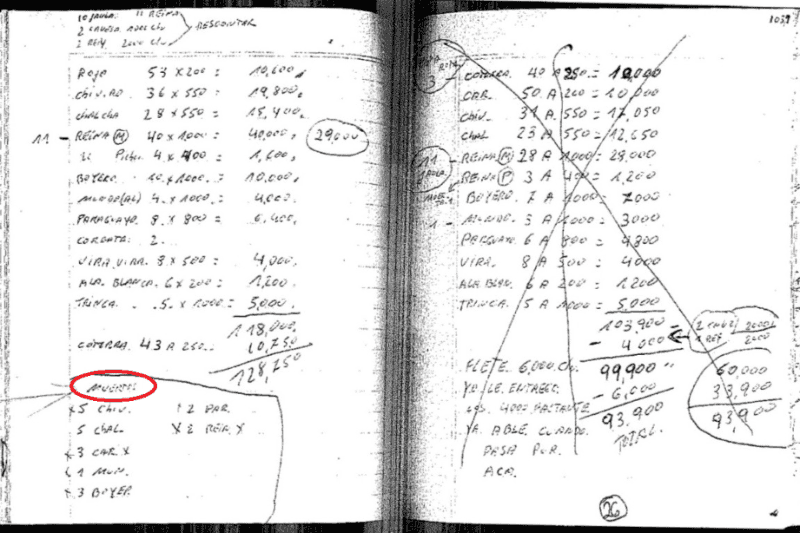 10 PAULA. 11 REINA
2 CABEZA 1000 C/U
2 REY. 2000 C/U
DESCONTAR
ROJO 53 X 200 = 10,600
CHIV.RO 36 X 550 = 19,800
CHALCHA 28 X 550 = 15,400
11 - REINA (M) 40 X 1000 = 40,000 29,000
4 X 400 = 1,600
BOYERO 10 X 1000 = 10,000
4 X 1000 = 4,000
PARAGUAYO. 8 X 800 = 6,400
2
VIRA VIRA. 8 X 500 = 4,000
ALA BLANCA. 6 X 200 = 1,200
TRINCA. 5 X 1000 = 5,000
118,000
COTORRA 43 A 250 10,750
128,750
MUERTOS
X 5 CHIV. 2 PAR.
5 CHAL X 2 REIN. X
X 3 CAR X
X 1 MUN.
X 3 BOYER
1039
3
COTORRA. 40 A 250 = 10,000
CAR. 50 A 200 = 10,000
CHIV. 31 A 550 = 17,050
CHAL 23 A 550 = 12,650
11 REINA (M) 28 A 1000 = 28,000
REINA (P) 3 A 400 = 1,200
BOYERO. 7 A 1000 = 7000
1 - MUNDO. 3 A 1000 = 3000
PARGUAYO 6 A 800 = 4800
VIRA. 8 A 500 = 4000
ALA BLAN. 6 A 200 = 1200
TRINCA. 5 A 1000 = 5,000
103,900
- 4000
2000
2000
FLETE 6,000 C/U. 99,900 60,000
YO LE ENTREGO - 6,000 33,900
4000 93,900 93,900
YA ABLE CUANDO TOTAL.
PASA POR
ACA.
26